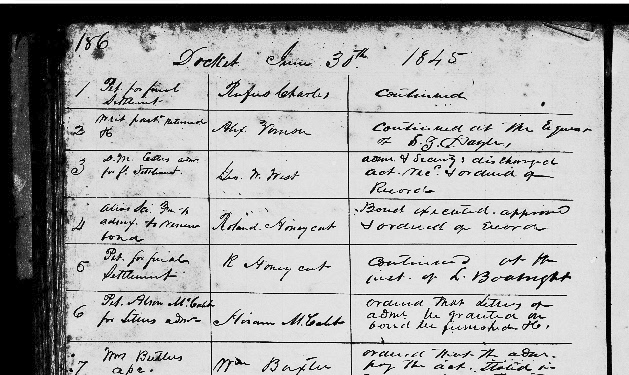 186
Docket June 30th 1845
1 Pet. for final Settlement
Rufus Charles
continued
2 Writ part. returned &c
Alex. Vernon
continued at the Request of
3 for fl. Settlement
Geo. W. West
admr & Security discharged
act. Rec. & ordered of Record
4 alias Sci. Fa. to admx. to renew bond
Roland Honeycut
Bond executed. approved & ordered of record
5 Pet. for final Settlement
R Honeycut
continued at the inst. of L. Boatright
6 Pet. Alson McCabb for letters admr
Hiram McCabb
ordered that letters of admr be granted on bond be furnished &c.
7 Wm Butlers apc.
Wm Baxter
ordered that the admr. pay the act. stated in